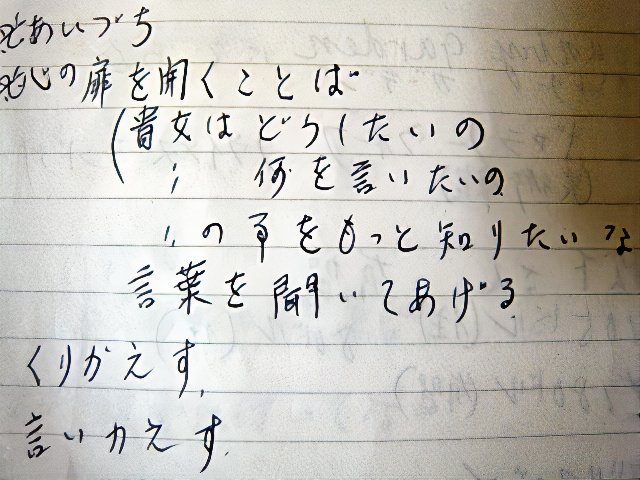 あいづち
心の扉を開くことば
(貴女はどうしたいの
〃 何を言いたいの
〃の事をもっと知りたいな
言葉を聞いてあげる
くりかえす.
言いカえす.